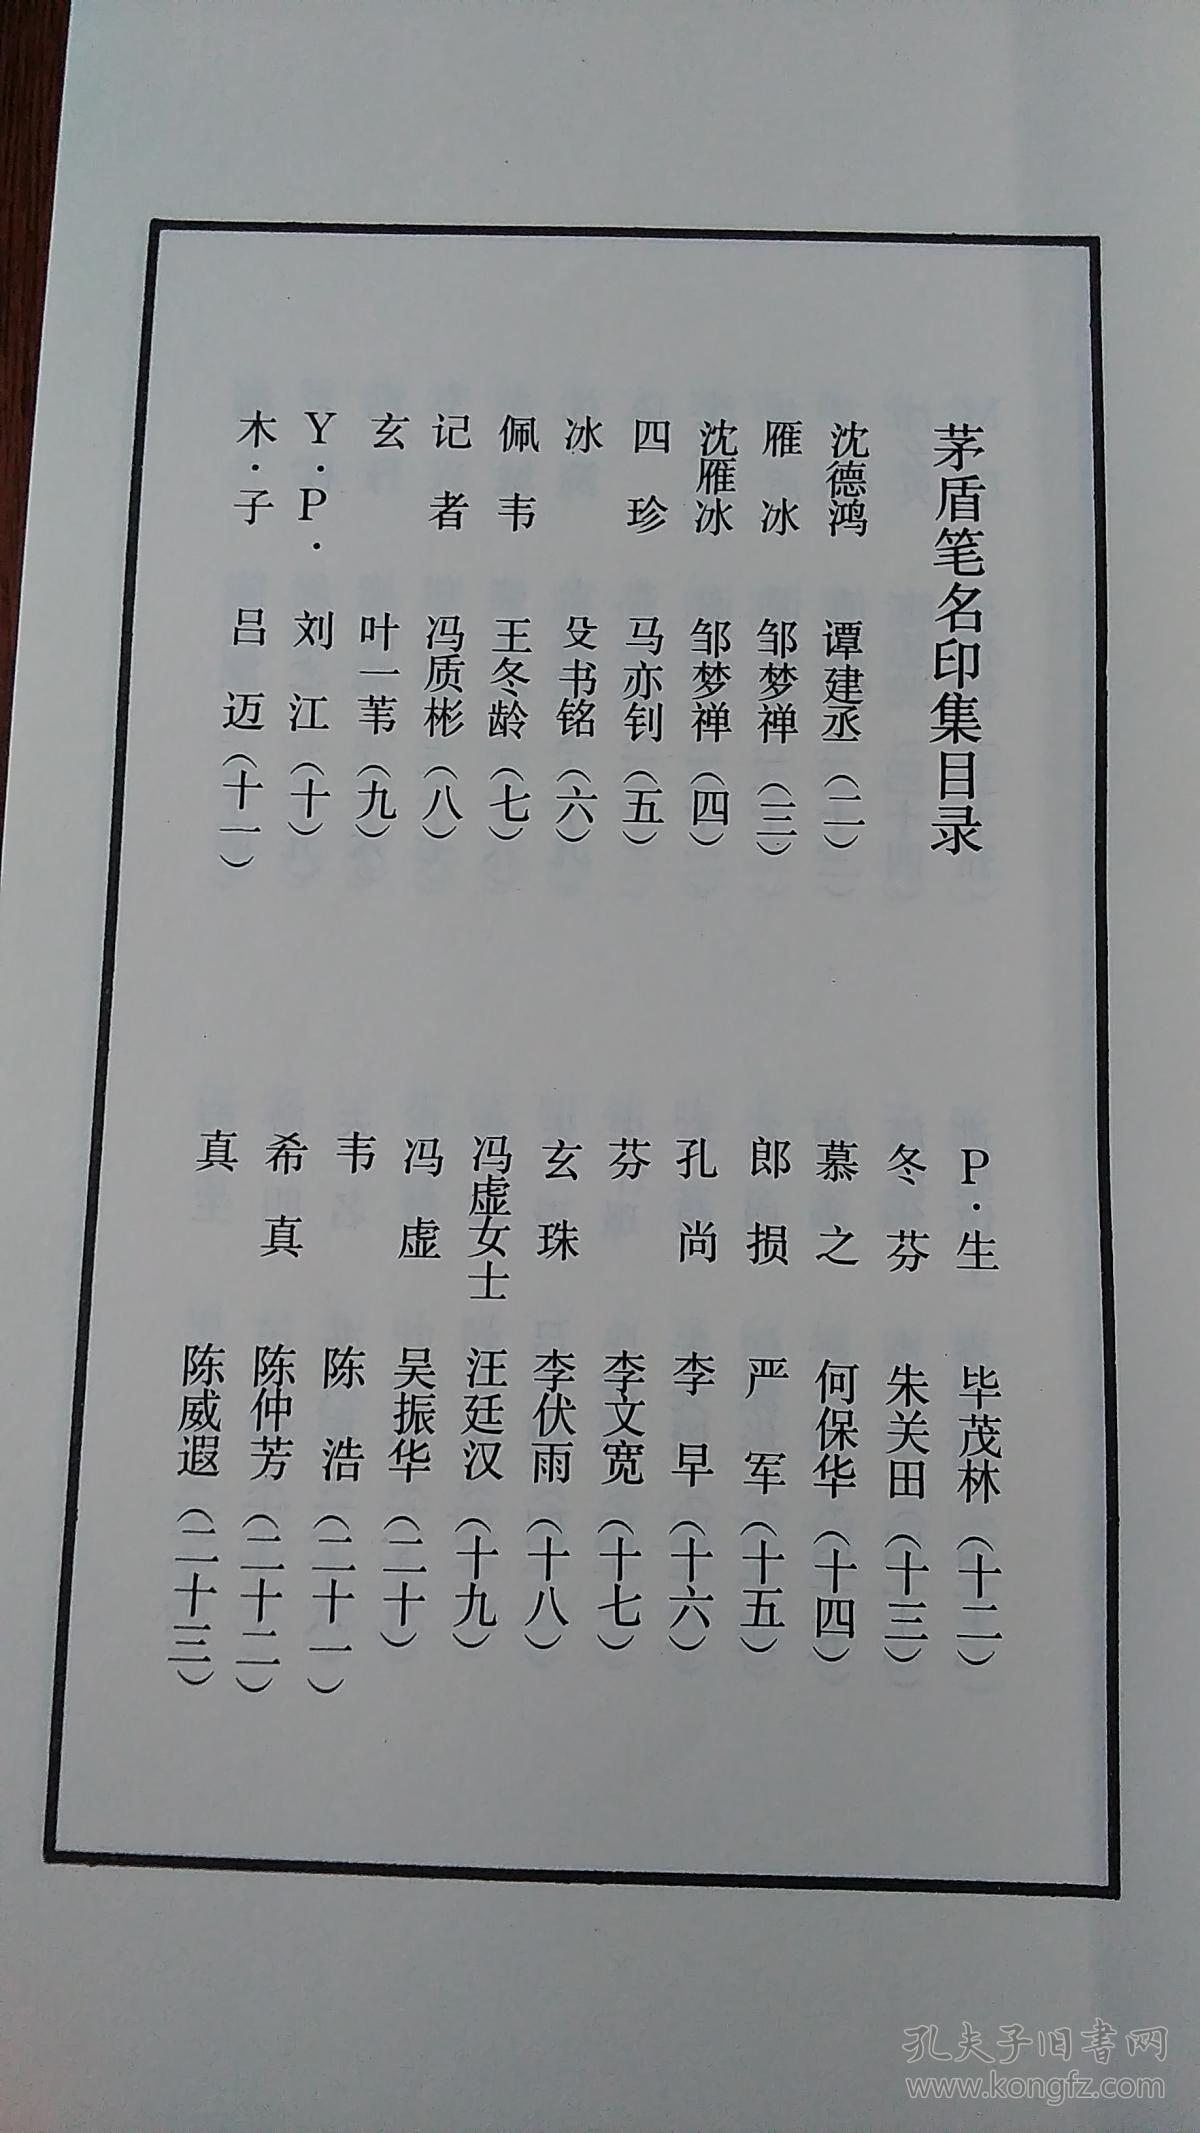 茅盾笔名印集目录
沈德鸿 谭建丞（二）
雁冰 邹梦禅（三）
沈雁冰 邹梦禅（四）
四珍 马亦钊（五）
冰 殳书铭（六）
佩韦 王冬龄（七）
记者 冯质彬（八）
玄 叶一苇（九）
Y·P· 刘江（十）
木·子 吕迈（十一）
P·生 毕茂林（十二）
冬芬 朱关田（十三）
慕之 何保华（十四）
郎损 严军（十五）
孔尚 李早（十六）
芬 李文宽（十七）
玄珠 李伏雨（十八）
冯虚女士 汪廷汉（十九）
冯虚 吴振华（二十）
韦 陈浩（二十一）
希真 陈仲芳（二十二）
真 陈威遐（二十三）
孔夫子旧书网
www.kongfz.com